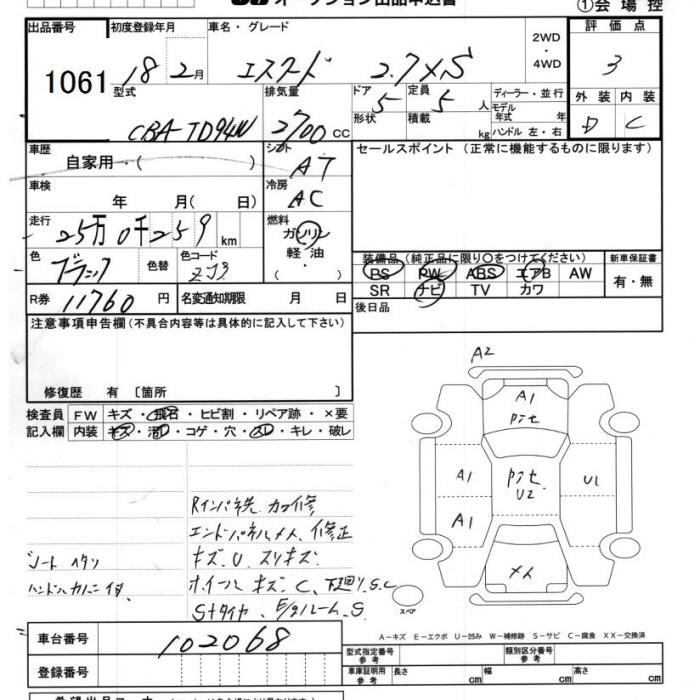 オークション出品申込書
①会場控
出品番号 初度登録年月 車名・グレード 2WD・4WD 評価点
1061 18 2月 エスクード 2.7XS 3
型式 排気量 ドア 5 定員 5人 ディーラー・並行 外装 内装
CBA-TD94W 2700 CC 形状 積載 kg モデル年式 年 D C
ハンドル 左・右
車歴 シフト セールスポイント (正常に機能するものに限ります)
自家用・( ) AT
車検 冷房
年 月( 日) AC
走行 燃料
25万0千259 km ガソリン・軽油・
色 色替 色コード 装備品 (純正品に限り○をつけてください) 新車保証書
ブラック ZJ3 PS PW ABS エアB AW 有・無
R券 11760 円 名変通知期限 月 日 SR ナビ TV カワ
後日品
注意事項申告欄(不具合内容等は具体的に記入して下さい)
修復歴 有 〔箇所 〕
検査員 FW キズ・飛石・ヒビ割・リペア跡・×要
記入欄 内装 キズ・汚れ・コゲ・穴・スレ・キレ・破レ
A2
A1
A1 U2 U1
A1
メメ
エンドパネルメメ、修正
シート ヘタリ キズ.U.スリキズ.
ホイールキズ.C、下廻りS.C
Sタイヤ
スペア
A-キズ E-エクボ U-凹み W-補修跡 S-サビ C-腐食 XX-交換済
車台番号 102068 型式指定番号 参考 類別区分番号 参考
登録番号 車庫証明用 参考 長さ cm 幅 cm 高さ cm